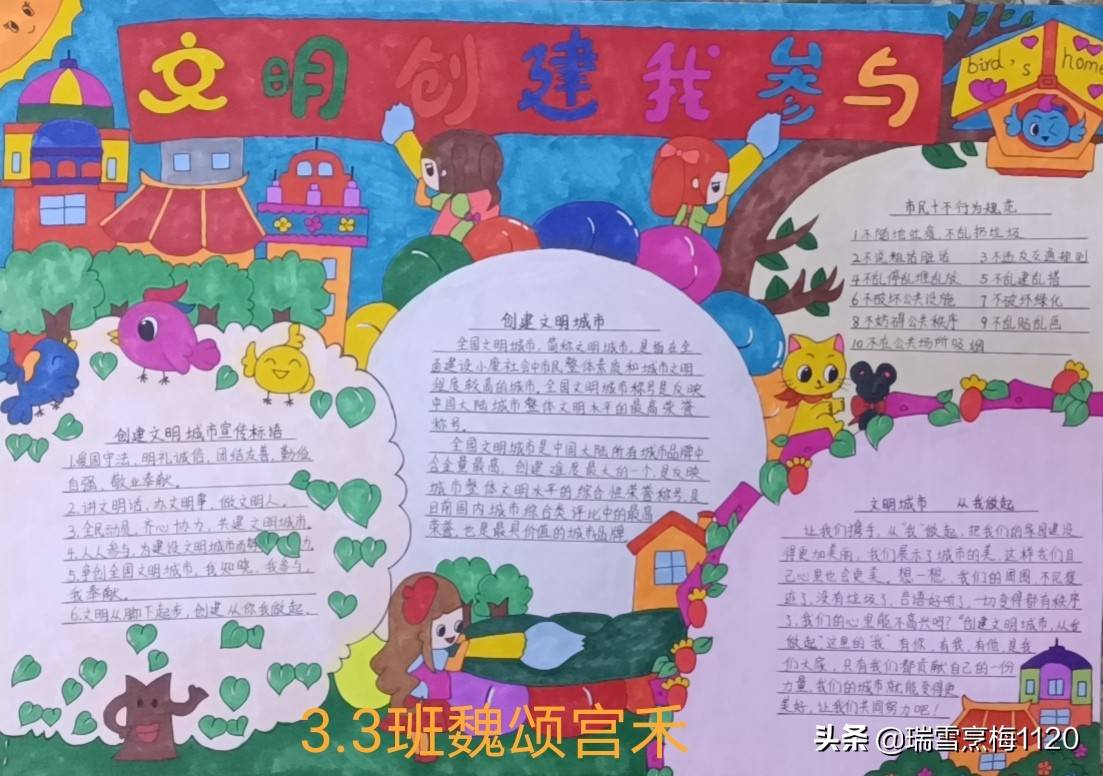 文明创建我参与
bird's home
市民十不行为规范
1不随地吐痰,不乱扔垃圾
2不说粗话脏话 3不违反交通规则
4不乱停乱堆乱放 5不乱建乱搭
6不破坏公共设施 7不破坏绿化
8不妨碍公共秩序 9不乱贴乱画
10不在公共场所吸烟
创建文明城市
全国文明城市,简称文明城市,是指在全
面建设小康社会中市民整体素质和城市文明
程度较高的城市。全国文明城市称号是反映
中国大陆城市整体文明水平的最高荣誉
称号。
全国文明城市是中国大陆所有城市品牌中
含金量最高、创建难度最大的一个,是反映
城市整体文明水平的综合性荣誉称号,是
目前国内城市综合类评比中的最高
荣誉,也是最具价值的城市品牌
创建文明城市宣传标语
1.爱国守法,明礼诚信,团结友善,勤俭
自强、敬业奉献。
2.讲文明话,办文明事,做文明人。
3.全民动员,齐心协力,共建文明城市。
4.人人参与,为建设文明城市 力
5.争创全国文明城市,我知晓、我参与、
我奉献。
6.文明从脚下起步,创建从你我做起。
文明城市 从我做起
让我们携手,从"我"做起,把我们的家园建设
得更加美丽,我们展示了城市的美,这样我们自
己心里也会更美。想一想,我们的周围,不
了,没有垃圾了,言语好听了,一切变得都有秩序
了,我们的心里能不高兴吗?"创建文明城市,从我
做起"这里的"我"有你,有我,有他,是我
们大家,只有我们都贡献自己的一份
力量,我们的城市就能变得更
美好,让我们共同努力吧!
3.3班魏颂宫禾
头条 @瑞雪烹梅1120